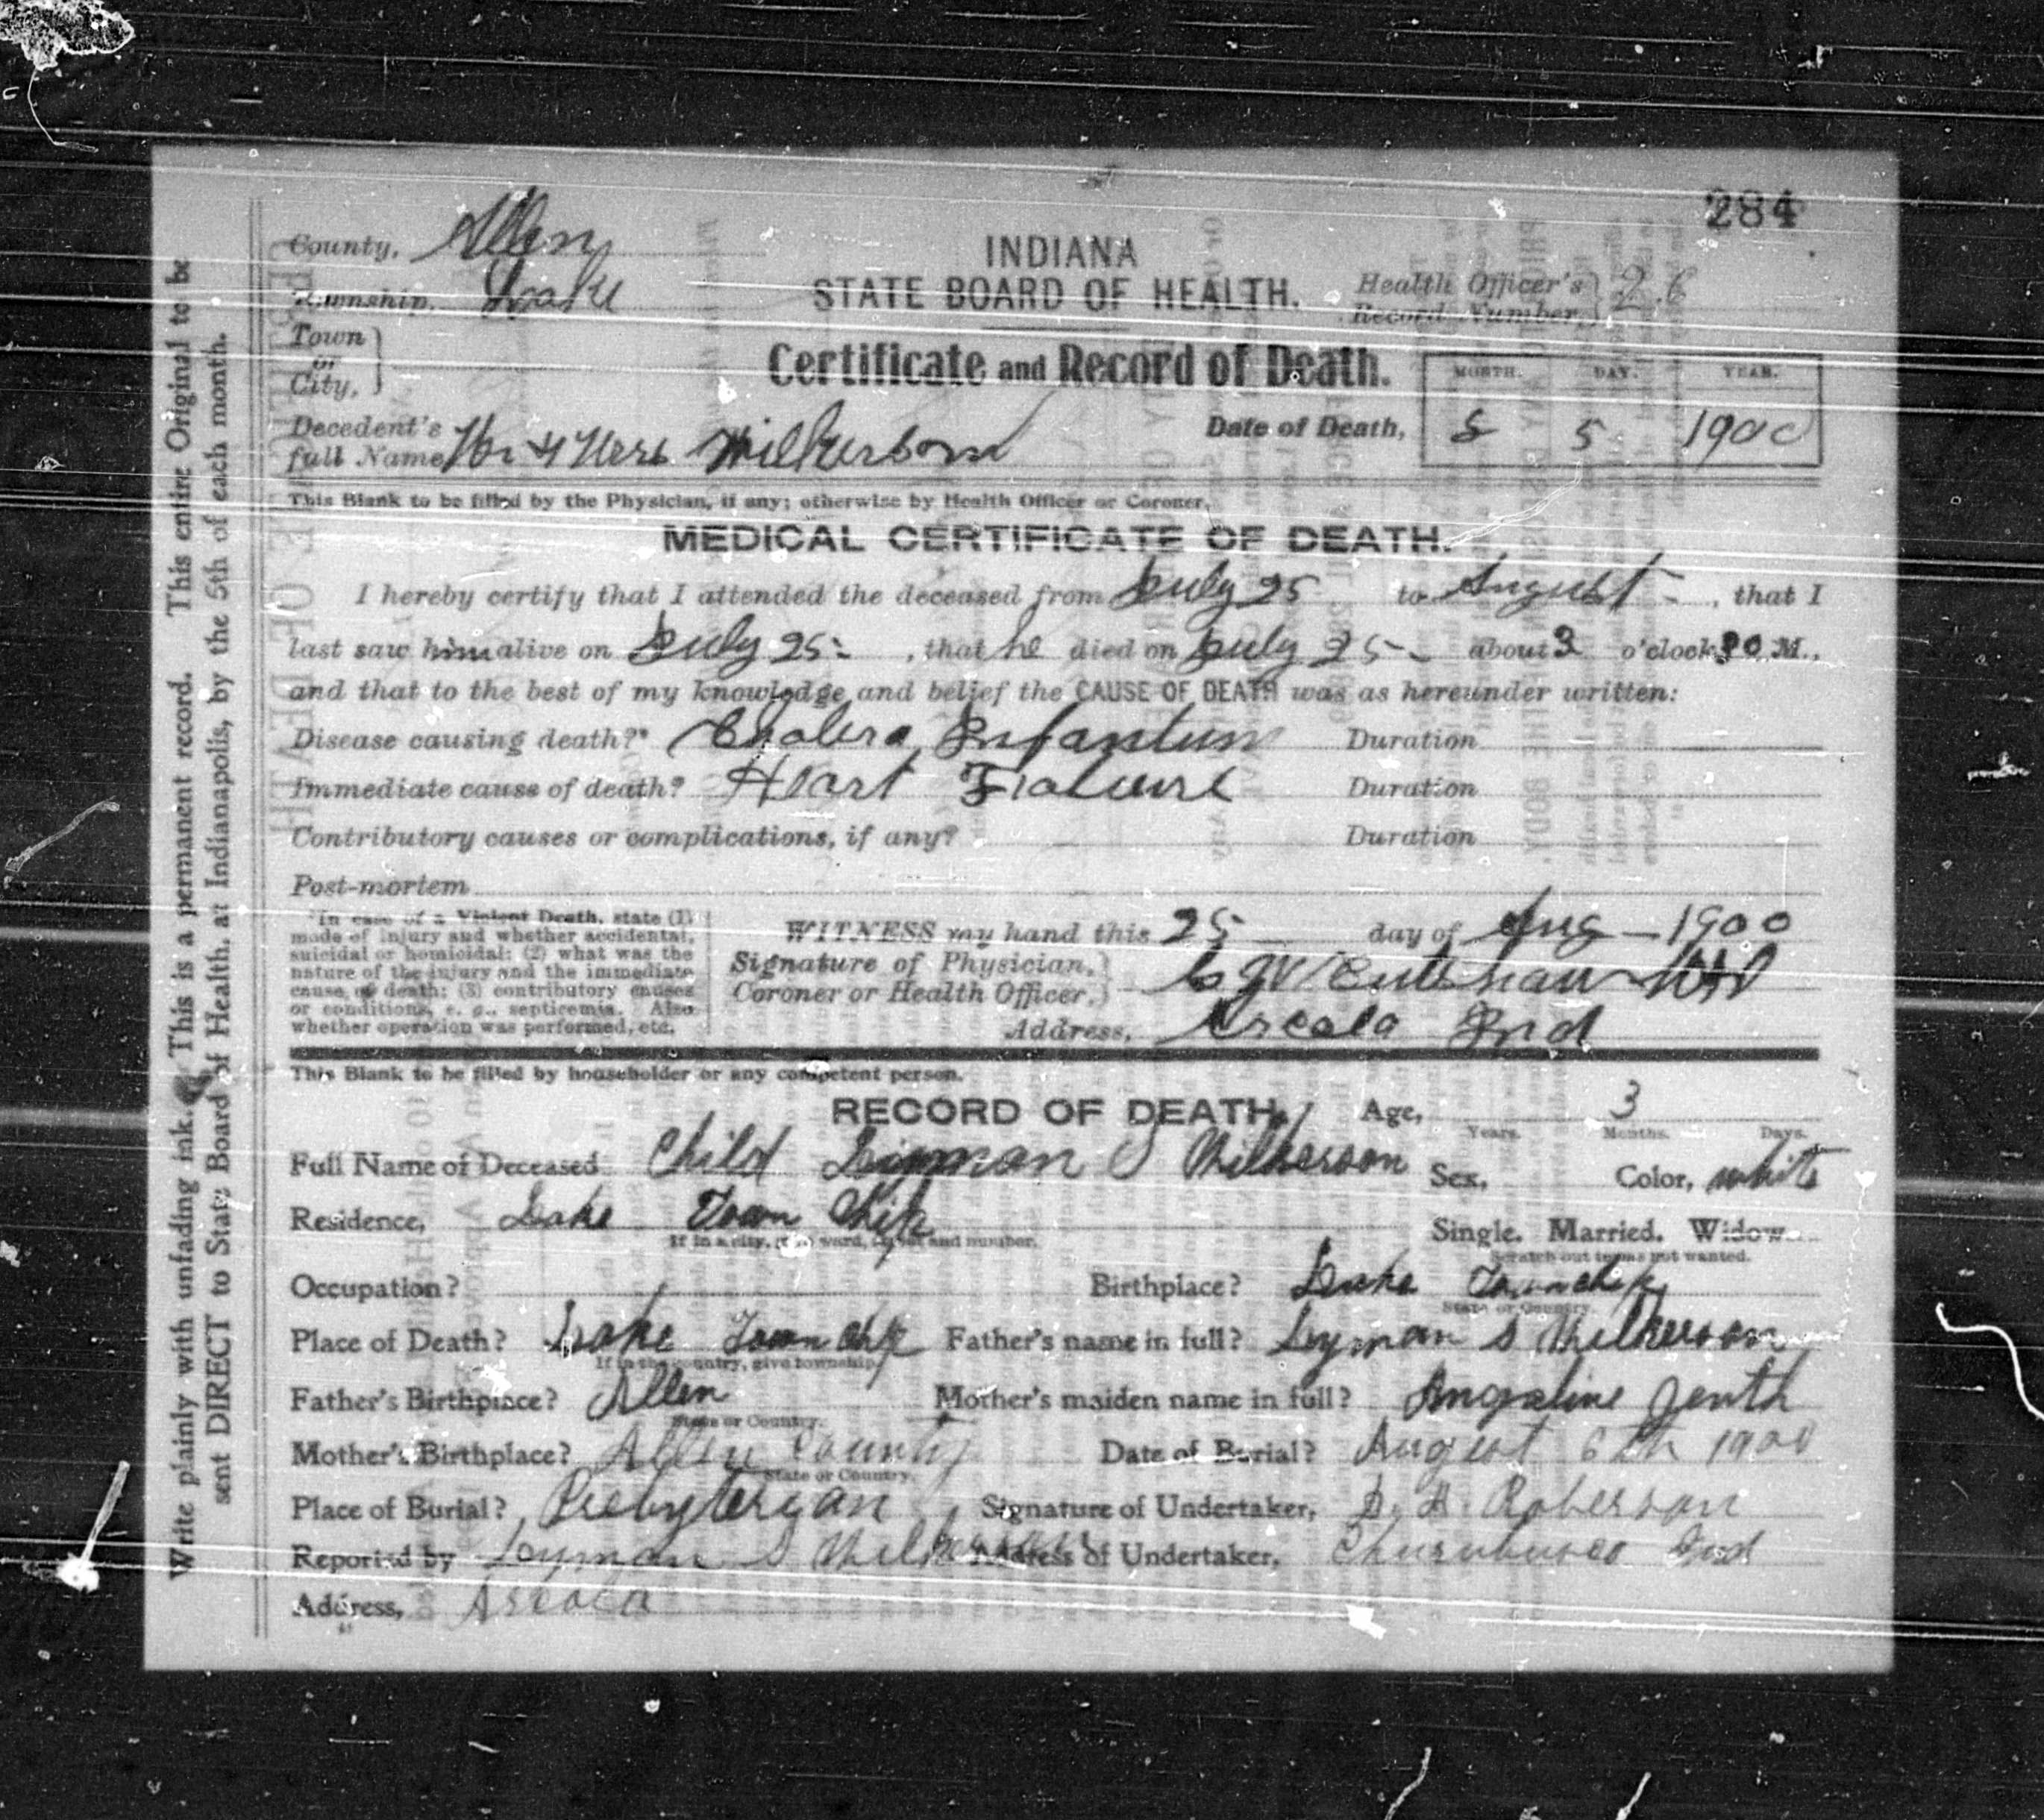 284
County, Allen
INDIANA
Township, Lake
STATE BOARD OF HEALTH.
Health Officer's Record Number, 26
Town or City,
Certificate and Record of Death.
MONTH. DAY. YEAR.
Decedent's full Name Mr & Mrs Wilkerson
Date of Death, 8 5 1900
This Blank to be filled by the Physician, if any; otherwise by Health Officer or Coroner.
MEDICAL CERTIFICATE OF DEATH.
I hereby certify that I attended the deceased from July 25 to August - , that I
last saw him alive on July 25 - , that he died on July 25 - about 3 o'clock P.M.,
and that to the best of my knowledge and belief the CAUSE OF DEATH was as hereunder written:
Disease causing death?* Cholera Infantum Duration
Immediate cause of death? Heart Fialuire Duration
Contributory causes or complications, if any? Duration
Post-mortem
*In case of a Violent Death, state (1)
mode of injury and whether accidental,
suicidal or homicidal; (2) what was the
nature of the injury and the immediate
cause of death; (3) contributory causes
or conditions, e. g., septicemia. Also
whether operation was performed, etc.
WITNESS my hand this 25 day of Aug - 1900
Signature of Physician, Coroner or Health Officer,
Address, Arcola Ind
This Blank to be filled by householder or any competent person.
RECORD OF DEATH. Age, 3
Years. Months. Days.
Full Name of Deceased Child Lyman S Wilkerson Sex, Color, white
Residence, Lake Town Ship Single. Married. Widow.
If in a city, give ward, street and number. Scratch out terms not wanted.
Occupation? Birthplace? Lake Township
State or Country.
Place of Death? Lake Town Ship Father's name in full? Lyman S Wilkerson
If in the country, give township.
Father's Birthplace? Allen Mother's maiden name in full? Angaline Jenth
State or Country.
Mother's Birthplace? Allen County Date of Burial? August 6th 1900
State or Country.
Place of Burial? Presbyteryan Signature of Undertaker, D. H. Roberson
Reported by Lyman S Wilkerson Address of Undertaker, Churubusco Ind
Address, Arcola
Write plainly with unfading ink. This is a permanent record. This entire Original to be
sent DIRECT to State Board of Health, at Indianapolis, by the 5th of each month.